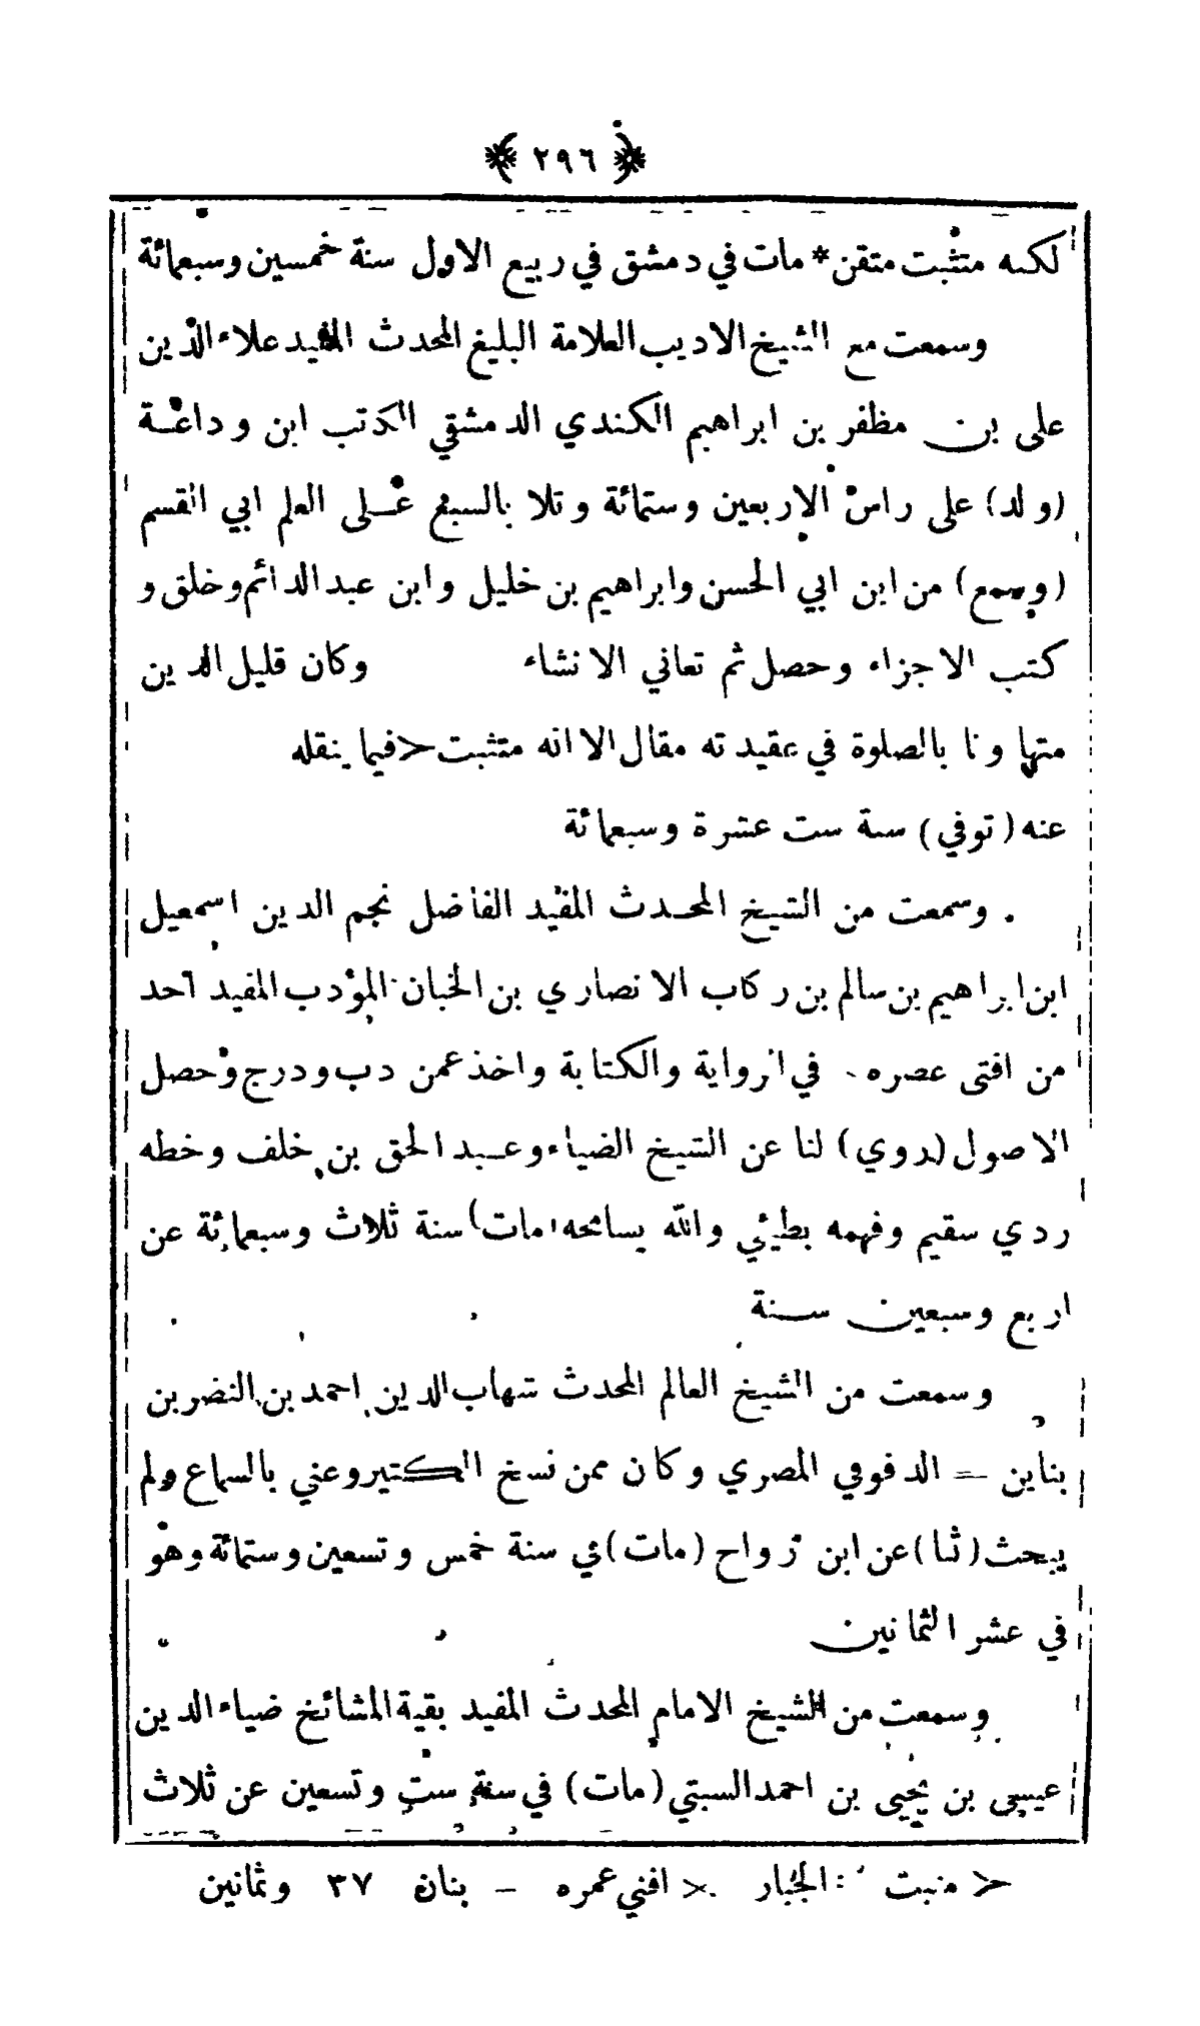 ﴿ ٢٩٦ ﴾
لكنه متثبت متقن * مات في دمشق في ربيع الاول سنة خمسين وسبعمائة
وسمعت مع الشيخ الاديب العلامة البليغ المحدث المفيد علاء الدين
على بن مظفر بن ابراهيم الكندي الدمشقي الكاتب ابن وداعة
(ولد) على راس الاربعين وستمائة وتلا بالسبع على العلم ابي القسم
(وسمع) من ابن ابي الحسن وابراهيم بن خليل وابن عبد الدائم وخلق و
كتب الاجزاء وحصل ثم تعاني الانشاء وكان قليل الدين
متهاونا بالصلوة في عقيدته مقال الا انه متثبت < فيما ينقله
عنه (توفي) سنة ست عشرة وسبعمائة
وسمعت من الشيخ المحدث المفيد الفاضل نجم الدين اسمعيل
ابن ابراهيم بن سالم بن ركاب الانصاري بن الخبان المؤدب المفيد احد
من افتى عصره في الرواية والكتابة واخذ عمن دب ودرج وحصل
الاصول (روي) لنا عن الشيخ الضياء وعبد الحق بن خلف وخطه
ردي سقيم وفهمه بطيئي والله يسامحه (مات) سنة ثلاث وسبعمائة عن
اربع وسبعين سنة
وسمعت من الشيخ العالم المحدث شهاب الدين احمد بن النضر بن
بناين = الدفوفي المصري وكان ممن نسخ الكثير وعني بالسماع ولم
يبحث (ثنا) عن ابن رواح (مات) في سنة خمس وتسعين وستمائة وهو
في عشر الثمانين
وسمعت من الشيخ الامام المحدث المفيد بقية المشائخ ضياء الدين
عيسى بن يحيى بن احمد السبتي (مات) في سنة ست وتسعين عن ثلاث
< منبت : الخباز × افني عمره – بنان ٣٧ وثمانين